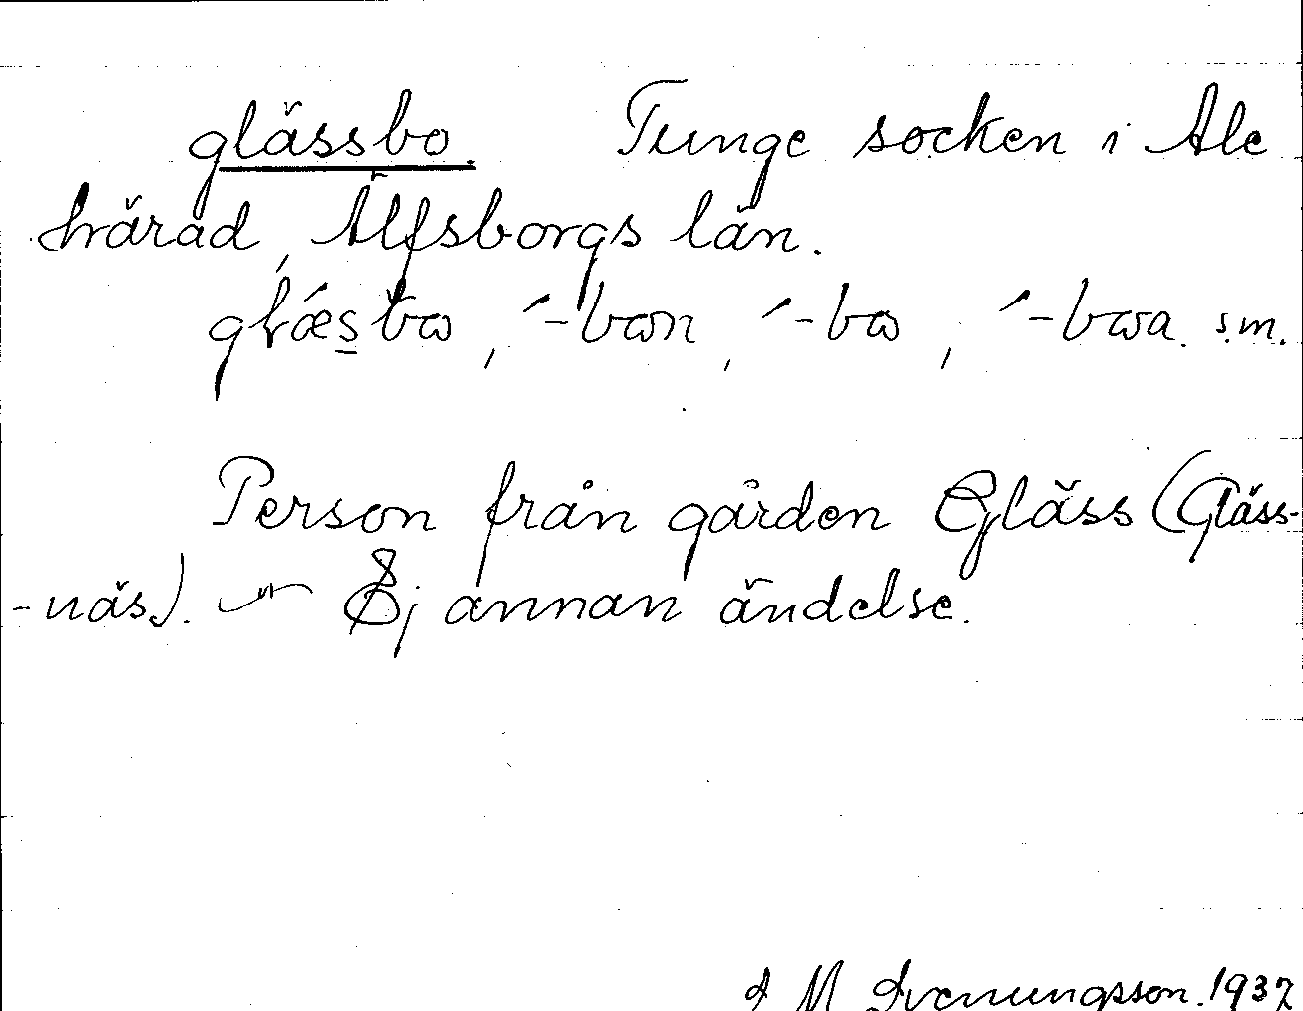 glässbo. Tunge socken i Ale
härad, Älfsborgs län.
glǽsbω, ´-bωn, ´-bω, ´-bωa. s.m.
Person från gården Gläss (Gläss-
-näs). ~ Ej annan ändelse.
J M Svenungsson. 1937